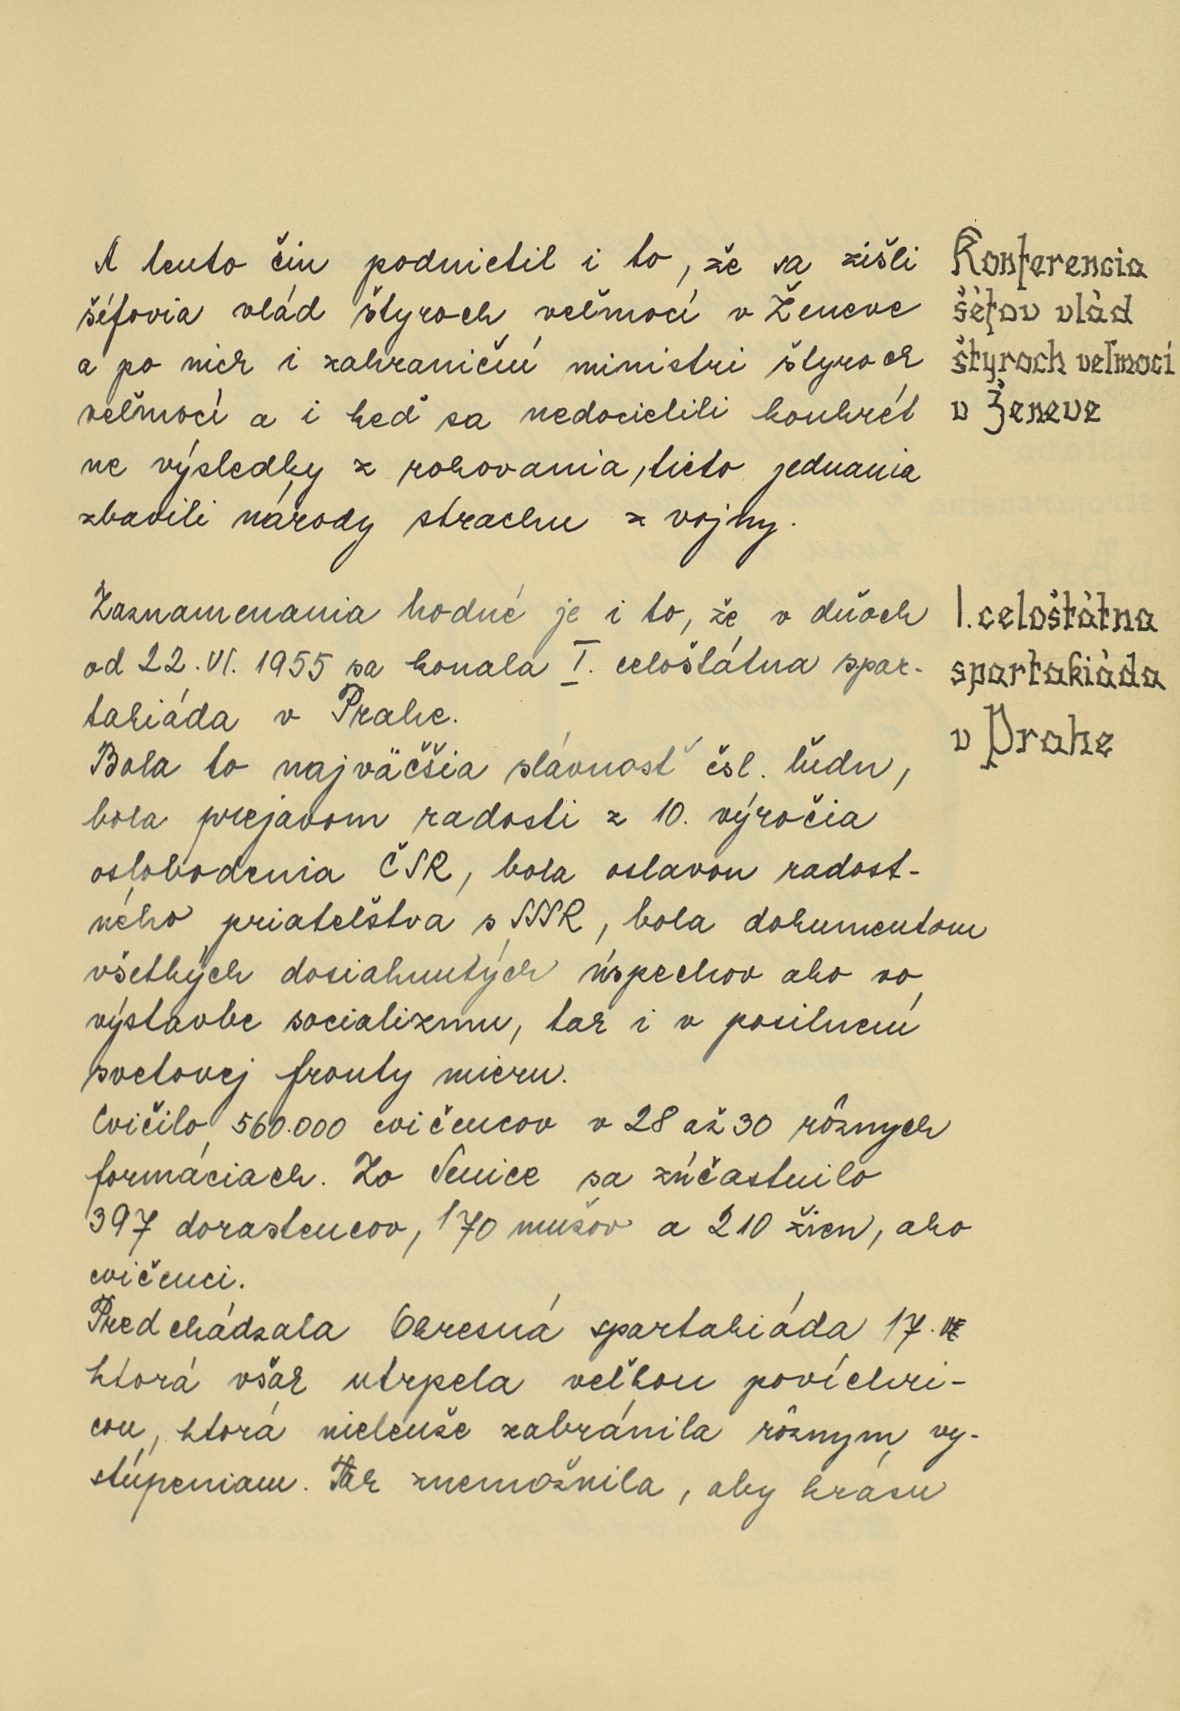 A tento čin podnietil i to, že sa zišli
šéfovia vlád štyroch veľmocí v Ženeve
a po nich i zahraniční ministri štyroch
veľmocí a i keď sa nedocielili konkrét
ne výsledky z rokovania, tieto jednania
zbavili národy strachu z vojny.
Konferencia
šéfov vlád
štyroch veľmocí
v Ženeve
Zaznamenania hodné je i to, že v dňoch
od 22. VI. 1955 sa konala I. celoštátna spar-
takiáda v Prahe.
I. celoštátna
spartakiáda
v Prahe
Bola to najväčšia slávnosť čsl. ľudu,
bola prejavom radosti z 10. výročia
oslobodenia ČSR, bola oslavou radost-
ného priateľstva s SSSR, bola dokumentom
všetkých dosiahnutých úspechov ako vo
výstavbe socializmu, tak i v posilnení
svetovej fronty mieru.
Cvičilo 560.000 cvičencov v 28 až 30 rôznych
formáciach. Zo Senice sa zúčastnilo
397 dorastencov, 170 mužov a 210 žien, ako
cvičenci.
Predchádzala Okresná spartakiáda 17. VI
ktorá však utrpela veľkou povíchri-
cou, ktorá nielenže zabránila rôznym vy-
stúpeniam. Tak znemožnila, aby krásu